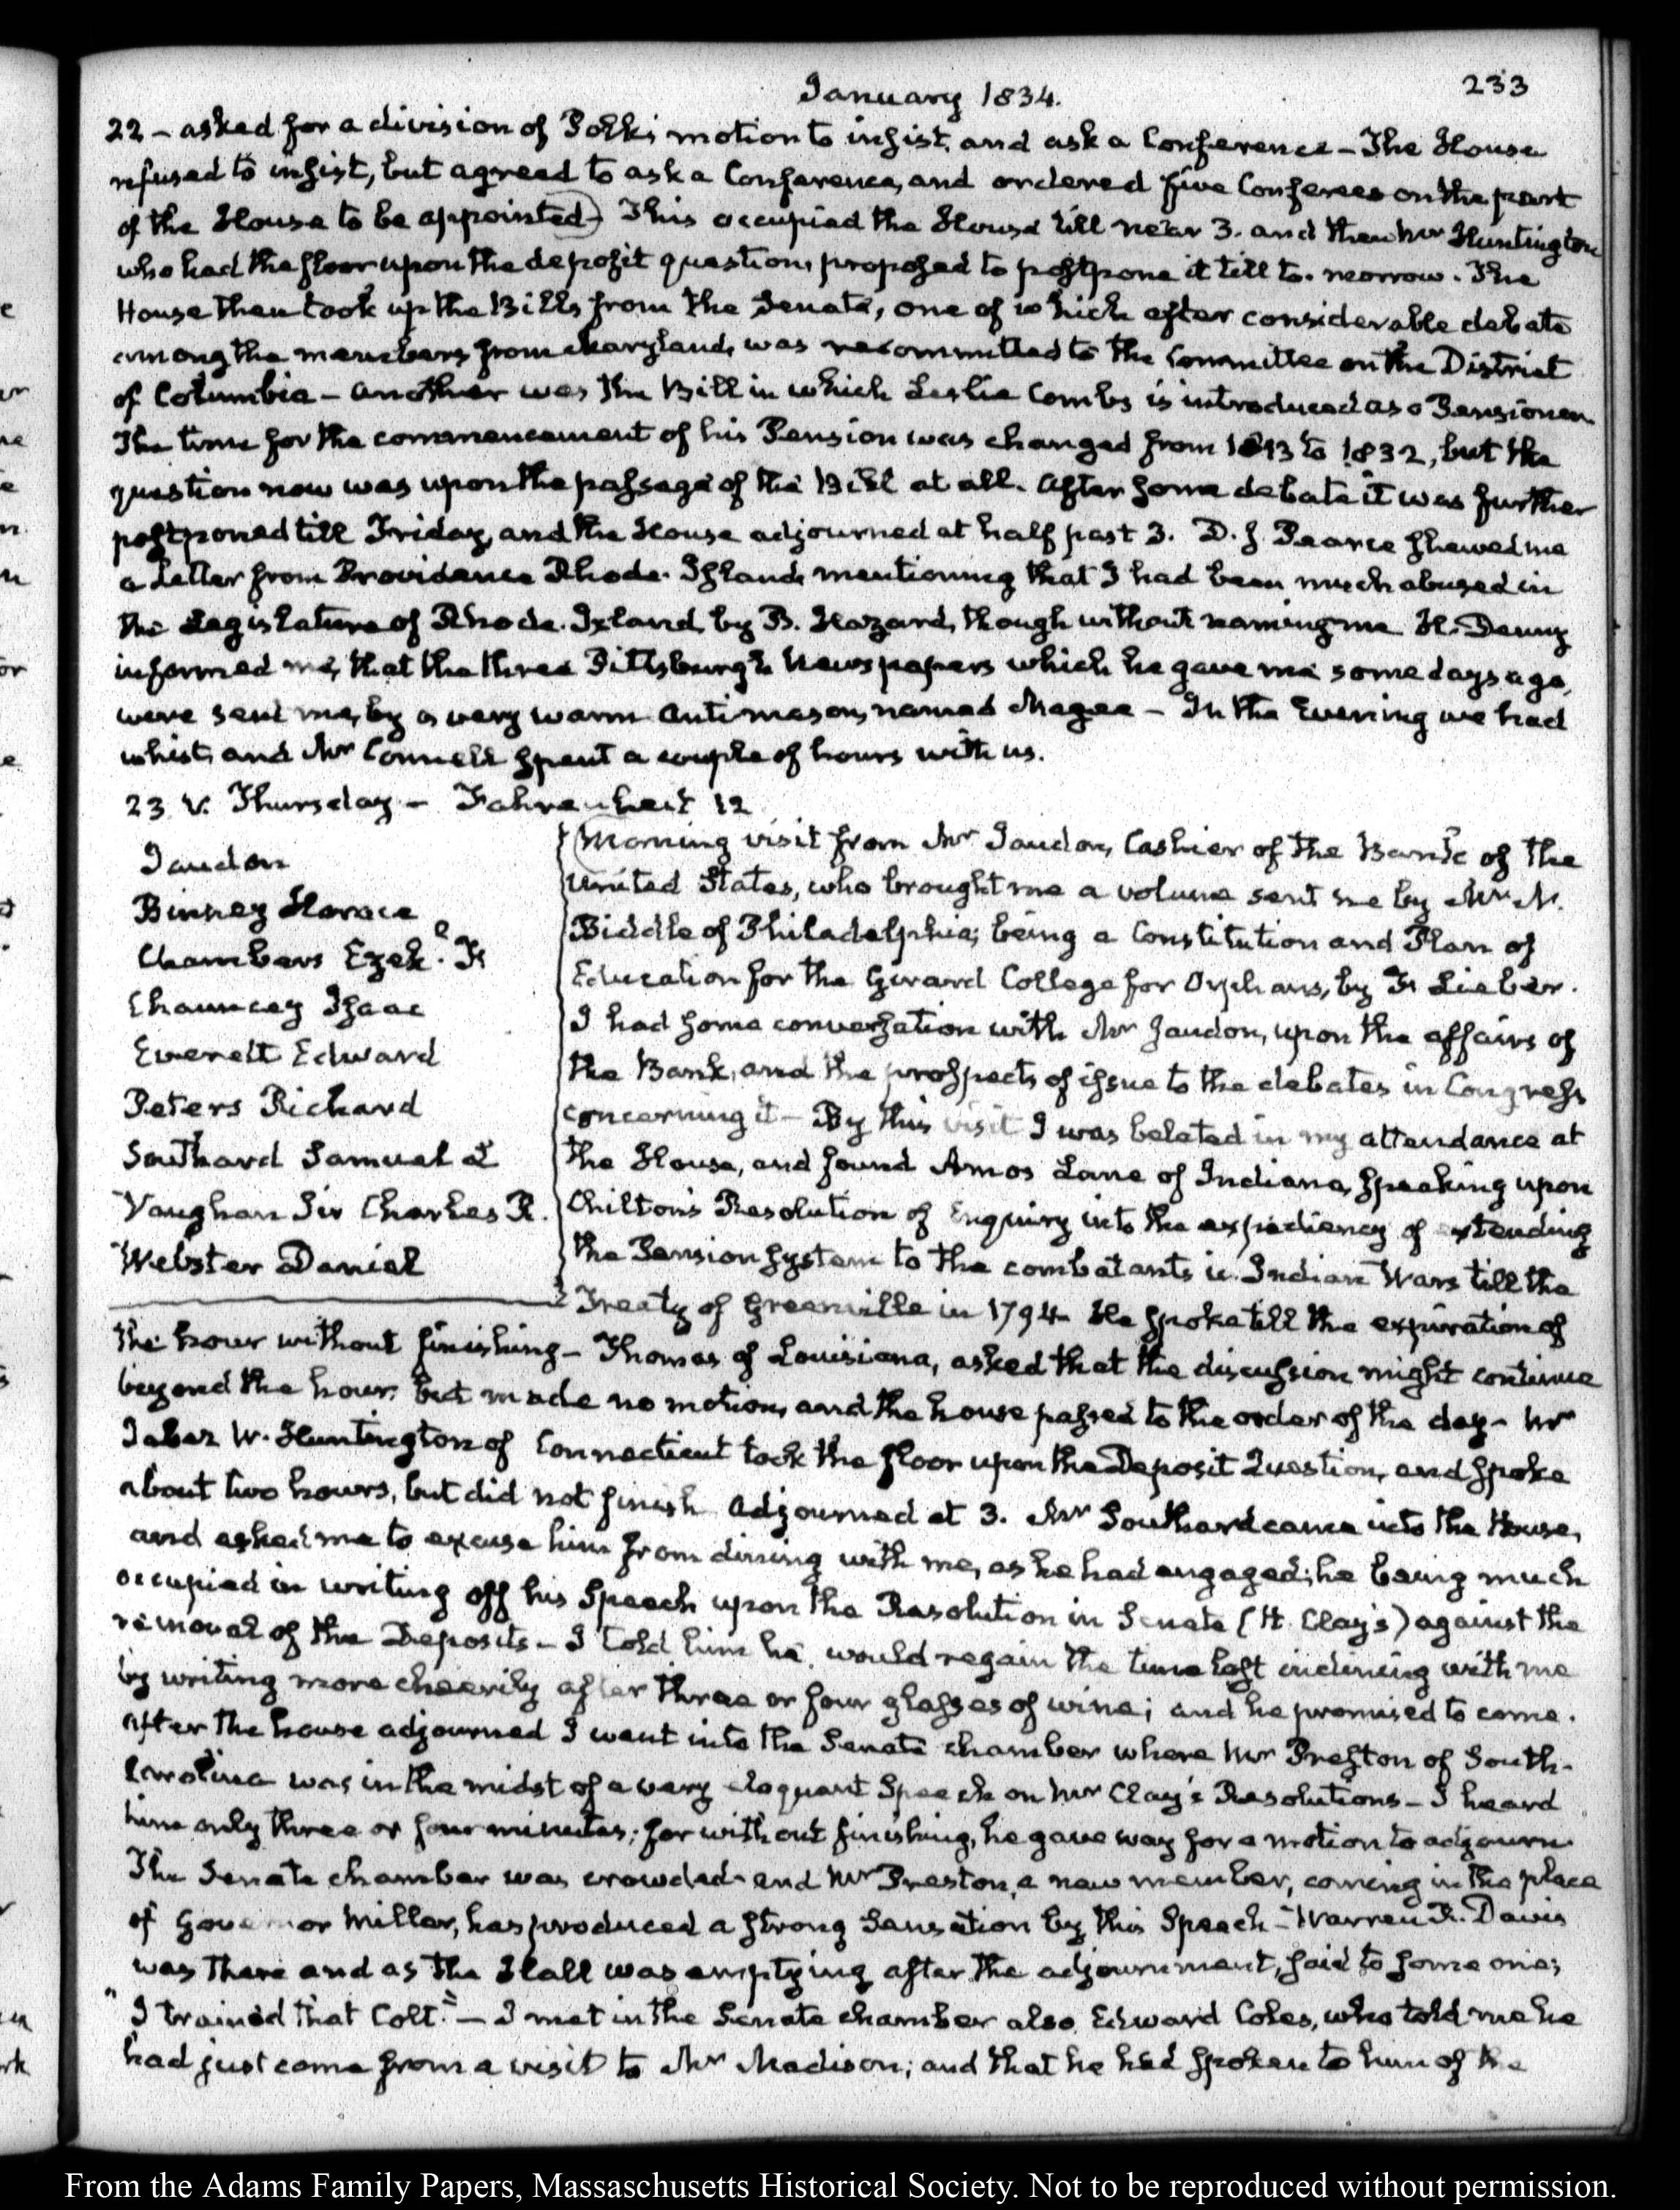 January 1834.
233
22 - asked for a division of Polk's motion to insist, and ask a Conference - The House
refused to insist, but agreed to ask a Conference, and ordered five Conferees on the part
of the House to be appointed) This occupied the House till near 3. and then Mr Huntington
who had the floor upon the deposit question, proposed to postpone it till to-morrow. The
House then took up the Bills from the Senate, one of which after considerable debate
among the members from Maryland, was recommitted to the Committee on the District
of Columbia - another was the Bill in which Leslie Combs is introduced as a Pensioner.
The time for the commencement of his Pension was changed from 1813 to 1832, but the
question now was upon the passage of the Bill at all. After some debate it was further
postponed till Friday, and the House adjourned at half past 3. D. J. Pearce shewed me
a Letter from Providence Rhode-Island, mentioning that I had been much abused in
the Legislature of Rhode-Island, by B. Hazard, though without naming me H. Denny
informed me, that the three Pittsburgh Newspapers which he gave me some days ago,
were sent me, by a very warm Antimason, named Magee - In the Evening we had
whist, and Mr Connell spent a couple of hours with us.
23. V. Thursday - Fahrenheit 12
Jaudon
Binney Horace
Chambers Ezek.e F.
Chauncey Isaac
Everett Edward
Peters Richard
Southard Samuel L
Vaughan Sir Charles R.
Webster Daniel
Morning visit from Mr Jaudon, Cashier of the Bank of the
United States, who brought me a volume sent me by Mr N.
Biddle of Philadelphia; being a Constitution and Plan of
Education for the Girard College for Orphans, by Fr Lieber.
I had some conversation with Mr Jaudon, upon the affairs of
the Bank, and the prospects of issue to the debates in Congress
concerning it - By this visit I was belated in my attendance at
the House, and found Amos Lane of Indiana, speaking upon
Chilton's Resolution of Enquiry into the expediency of extending
the Pension system to the combatants in Indian Wars till the
Treaty of Greenville in 1794. He spoke till the expiration of
the hour without finishing - Thomas of Louisiana, asked that the discussion might continue
beyond the hour. but made no motion, and the house passed to the order of the day - Mr
Jabez W. Huntington of Connecticut took the floor upon the Deposit Question, and spoke
about two hours, but did not finish. Adjourned at 3. Mr Southard came into the House,
and asked me to excuse him from dining with me, as he had engaged; he being much
occupied in writing off his Speech upon the Resolution in Senate (H. Clay's) against the
removal of the Deposits - I told him he would regain the time lost in dining with me
by writing more cheerily after three or four glasses of wine; and he promised to come.
After the house adjourned I went into the Senate chamber where Mr Preston of South-
Carolina was in the midst of a very eloquent Speech on Mr Clay's Resolutions - I heard
him only three or four minutes; for without finishing, he gave way for a motion to adjourn
The Senate chamber was crowded - and Mr Preston, a new member, coming in the place
of Governor Miller, has produced a strong Sensation by this Speech - Warren R. Davis
was there and as the Hall was emptying after the adjournment, said to some one;
"I trained that Colt." - I met in the Senate chamber also, Edward Coles, who told me he
had just come from a visit to Mr Madison; and that he had spoken to him of the
From the Adams Family Papers, Massachusetts Historical Society. Not to be reproduced without permission.